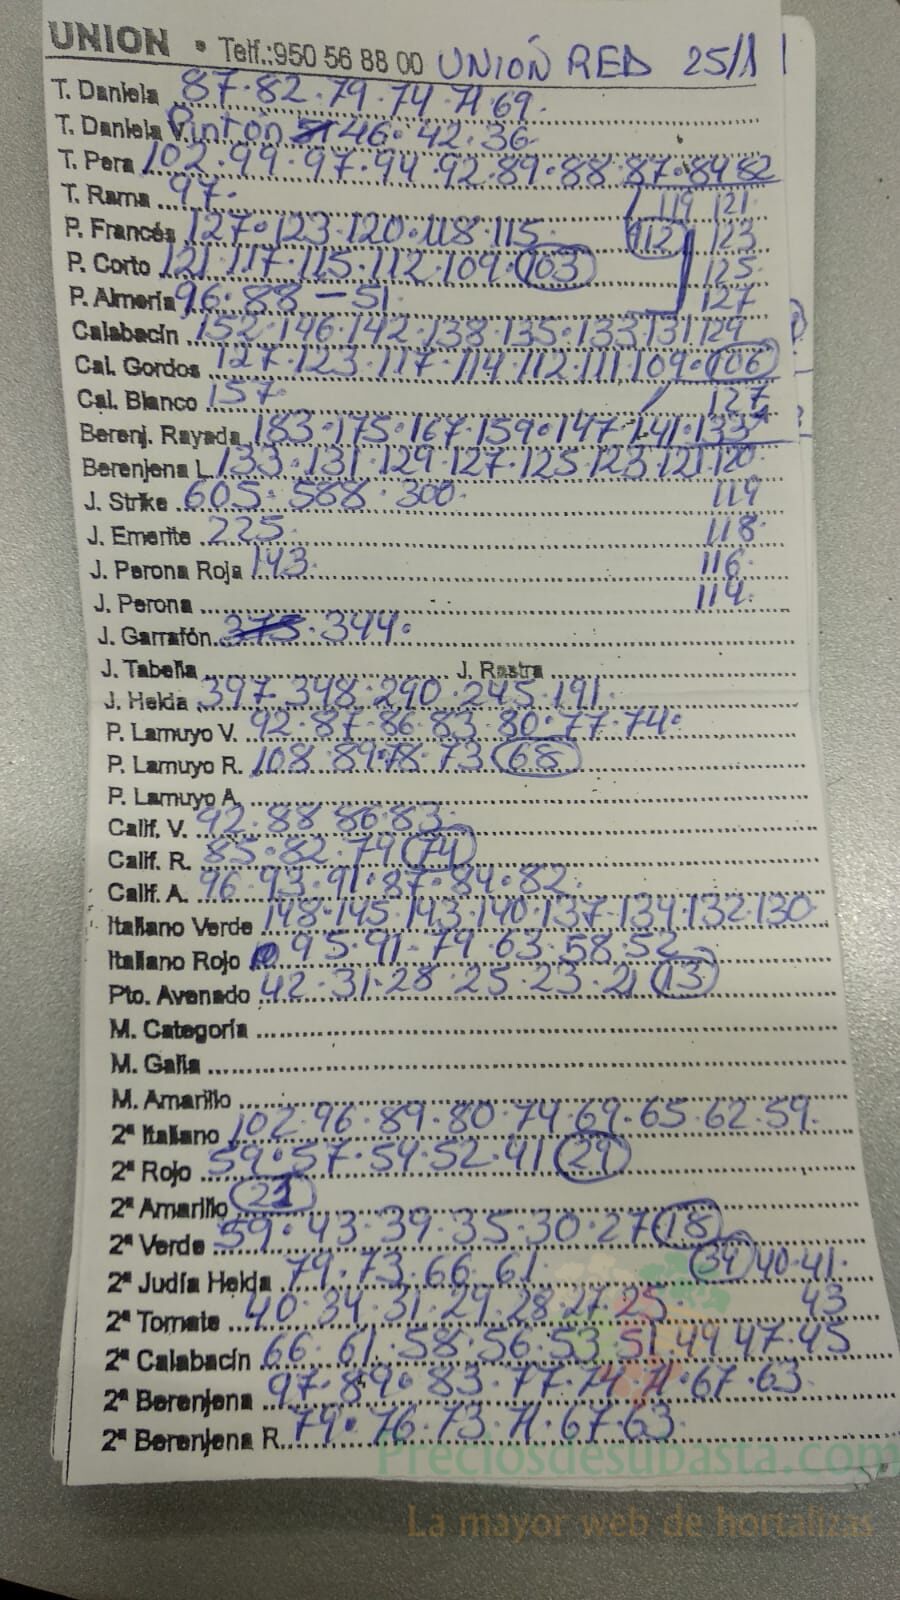 UNION • Telf.: 950 56 88 00 UNIÓN RED 25/1
T. Daniela 87·82·79·74·71·69·
T. Daniela V. Pintón 46·42·36
T. Pera 102·99·97·94·92·89·88·87·84 82
T. Rama 97· 119 121
P. Francés 127·123·120·118·115 112 123
P. Corto 121·117·115·112·109·103 125
P. Almería 96·88–51 127
Calabacín 152·146·142·138·135·133 131·129
Cal. Gordos 127·123·117·114·112·111·109·106
Cal. Blanco 157· 127
Berenj. Rayada 183·175·167·159·147·141·133
Berenjena L 133·131·129·127·125·123·121·120
J. Strike 605·568·300· 119
J. Emerite 225· 118·
J. Perona Roja 143· 116·
J. Perona 114·
J. Garrafón 375·344·
J. Tabella J. Rastra
J. Helda 397 348·290·245·191
P. Lamuyo V. 92·87·86·83·80·77·74·
P. Lamuyo R. 108·89·78·73 68
P. Lamuyo A.
Calif. V. 92·88 86·83·
Calif. R. 85·82·79 74
Calif. A. 96·93·91·87·84·82·
Italiano Verde 148·145·143·140·137·134·132·130
Italiano Rojo 95·91·79·63·58·52
Pto. Avenado 42·31·28·25·23·21 13
M. Categoría
M. Galia
M. Amarillo
2ª Italiano 102·96·89·80·74·69·65·62·59·
2ª Rojo 59·57·54·52·41 29
2ª Amarillo 21
2ª Verde 59·43·39·35·30·27 18
2ª Judía Helda 79·73·66·61· 34 40·41·
2ª Tomate 40·34·31·29·28·27·25· 43
2ª Calabacín 66·61·58·56·53·51·49 47·45
2ª Berenjena 97·89·83·77·74·71·67·63·
2ª Berenjena R. 79·76·73·71·67·63·
Preciosdesubasta.com
La mayor web de hortalizas